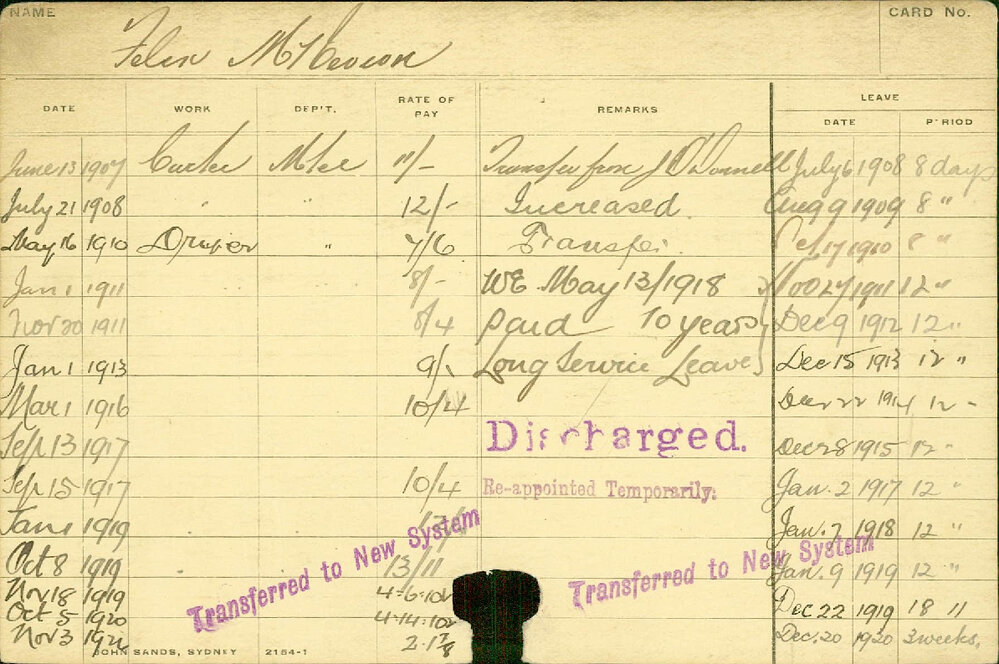 NAME CARD No.
Felix
DATE WORK DEP'T. RATE OF PAY REMARKS LEAVE
DATE P'RIOD
June 13 1907 Carter 11/- Transfer from J O'Donnell July 6 1908 8 days
July 21 1908 " 12/- Increased. Aug 9 1909 8 "
May 16 1910 " 7/6 Transfer Oct 17 1910 8 "
Jan 1 1911 8/- WE May 13/1918 Nov 27 1911 12 "
Nov 20 1911 8/4 paid 10 years Dec 9 1912 12 "
Jan 1 1913 9/- Long Service Leave Dec 15 1913 12 "
Mar 1 1916 10/4 Dec 22 1914 12 "
Sept 13 1917 Discharged. Dec 28 1915 12 "
Sep 15 1917 10/4 Re-appointed Temporarily. Jan. 2 1917 12 "
Jan 1 1919 Jan. 7 1918 12 "
Transferred to New System Transferred to New System
Oct 8 1919 13/11 Jan. 9 1919 12 "
Nov 18 1919 4-6-10½ Dec 22 1919 18 11
Oct 5 1920 4-14-10½ Dec. 20 1920 3 weeks.
Nov 3 2.1⅞
JOHN SANDS, SYDNEY 2154-1